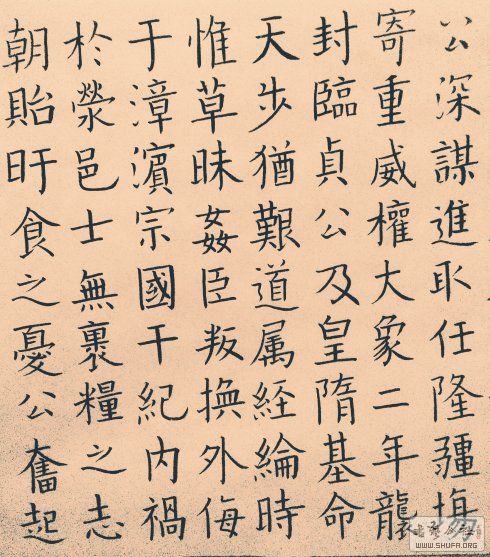 公深謀進取任隆疆
寄重威權大象二年襲
封臨貞公及皇隋基命
天步猶艱道属経綸時
惟草昧姦臣叛換外侮
于漳濱宗國干紀内禍
於滎邑士無裹糧之志
朝貽旰食之憂公奮起
WWW.SHUFA.ORG